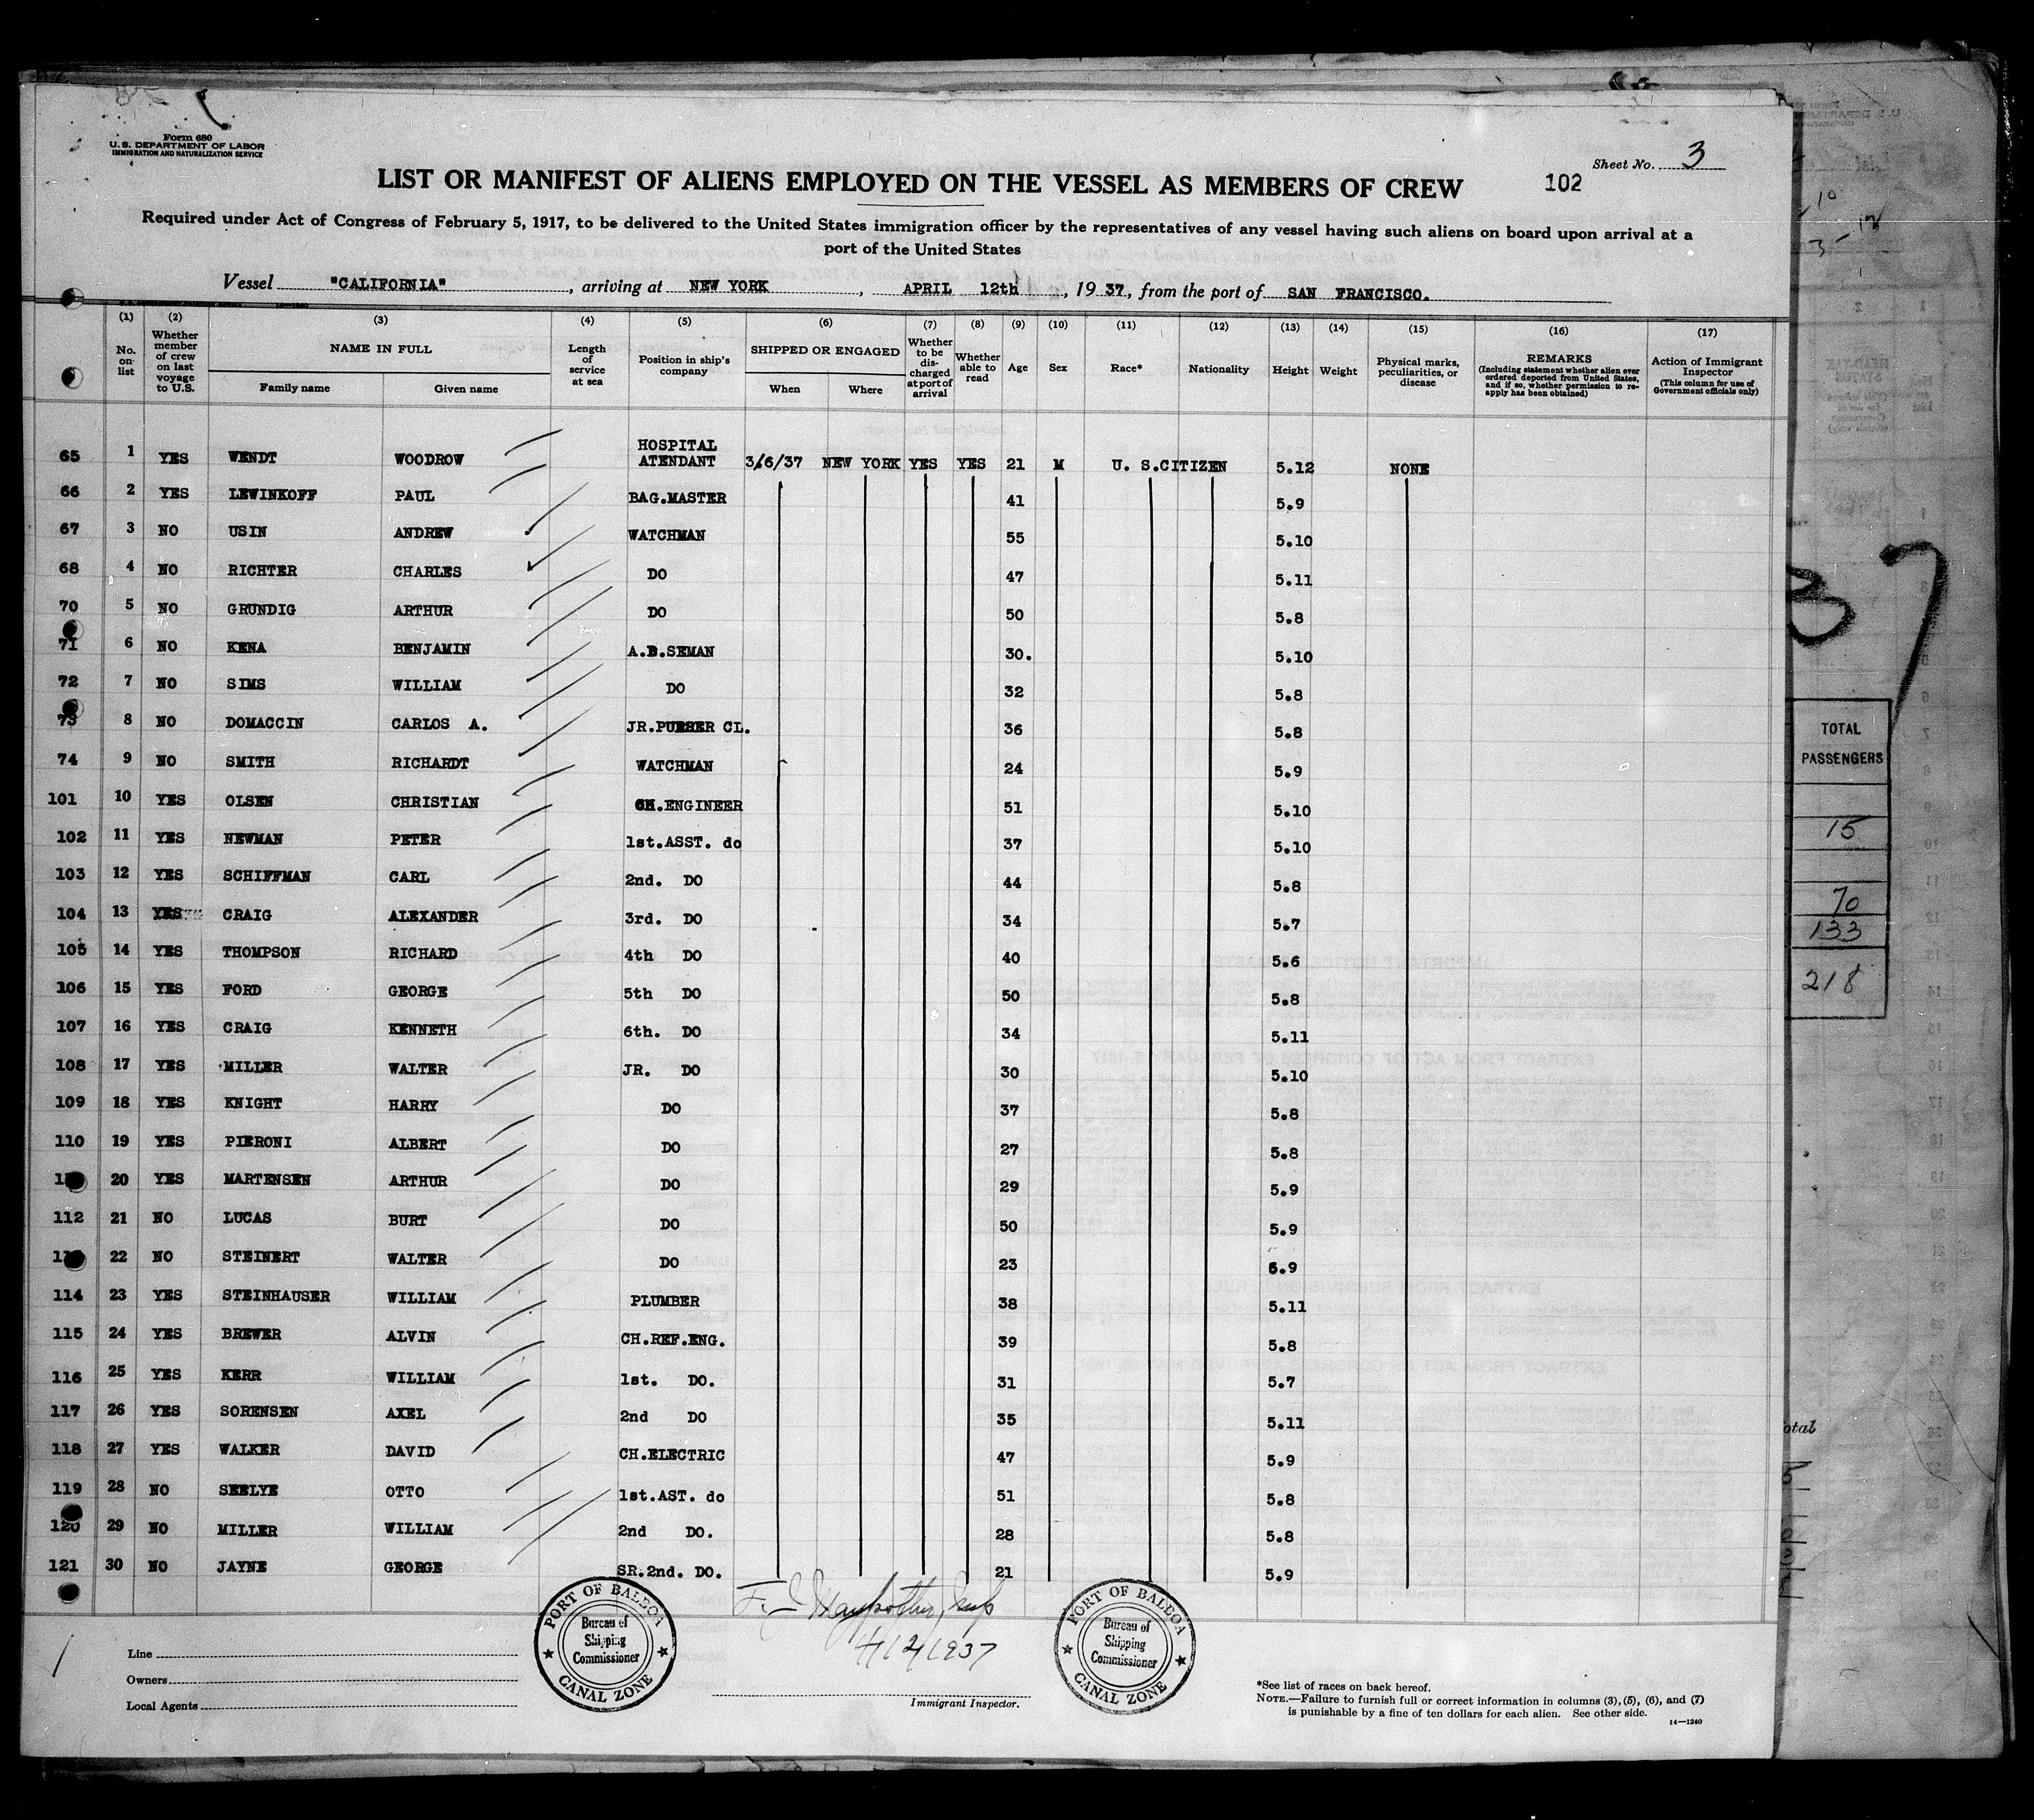 Form 680
U. S. DEPARTMENT OF LABOR
IMMIGRATION AND NATURALIZATION SERVICE
Sheet No. 3
102
LIST OR MANIFEST OF ALIENS EMPLOYED ON THE VESSEL AS MEMBERS OF CREW
Required under Act of Congress of February 5, 1917, to be delivered to the United States immigration officer by the representatives of any vessel having such aliens on board upon arrival at a
port of the United States
Vessel "CALIFORNIA", arriving at NEW YORK, APRIL 12th, 1937, from the port of SAN FRANCISCO.
(1) (2) (3) (4) (5) (6) (7) (8) (9) (10) (11) (12) (13) (14) (15) (16) (17)
No. on list
Whether member of crew on last voyage to U.S.
NAME IN FULL
Family name
Given name
Length of service at sea
Position in ship's company
SHIPPED OR ENGAGED
When
Where
Whether to be discharged at port of arrival
Whether able to read
Age
Sex
Race*
Nationality
Height
Weight
Physical marks, peculiarities, or disease
REMARKS
(Including statement whether alien ever ordered deported from United States, and if so, whether permission to reapply has been obtained)
Action of Immigrant Inspector
(This column for use of Government officials only)
65 1 YES WENDT WOODROW HOSPITAL ATENDANT 3/6/37 NEW YORK YES YES 21 M U. S.CITIZEN 5.12 NONE
66 2 YES LEWINKOFF PAUL BAG.MASTER 41 5.9
67 3 NO USIN ANDREW WATCHMAN 55 5.10
68 4 NO RICHTER CHARLES DO 47 5.11
70 5 NO GRUNDIG ARTHUR DO 50 5.8
71 6 NO KENA BENJAMIN A.B.SEMAN 30. 5.10
72 7 NO SIMS WILLIAM DO 32 5.8
73 8 NO DOMACCIN CARLOS A. JR.PURSER CL. 36 5.8
74 9 NO SMITH RICHARDT WATCHMAN 24 5.9
101 10 YES OLSEN CHRISTIAN CH.ENGINEER 51 5.10
102 11 YES NEWMAN PETER 1st.ASST. do 37 5.10
103 12 YES SCHIFFMAN CARL 2nd. DO 44 5.8
104 13 YES CRAIG ALEXANDER 3rd. DO 34 5.7
105 14 YES THOMPSON RICHARD 4th DO 40 5.6
106 15 YES FORD GEORGE 5th DO 50 5.8
107 16 YES CRAIG KENNETH 6th. DO 34 5.11
108 17 YES MILLER WALTER JR. DO 30 5.10
109 18 YES KNIGHT HARRY DO 37 5.8
110 19 YES PIERONI ALBERT DO 27 5.8
20 YES MARTENSEN ARTHUR DO 29 5.9
112 21 NO LUCAS BURT DO 50 5.9
22 NO STEINERT WALTER DO 23 5.9
114 23 YES STEINHAUSER WILLIAM PLUMBER 38 5.11
115 24 YES BREWER ALVIN CH.REF.ENG. 39 5.8
116 25 YES KERR WILLIAM 1st. DO. 31 5.7
117 26 YES SORENSEN AXEL 2nd DO 35 5.11
118 27 YES WALKER DAVID CH.ELECTRIC 47 5.9
119 28 NO SEELYE OTTO 1st.AST. do 51 5.8
120 29 NO MILLER WILLIAM 2nd DO. 28 5.8
121 30 NO JAYNE GEORGE SR.2nd. DO. 21 5.9
PORT OF BALBOA
Bureau of Shipping Commissioner
CANAL ZONE
4/12/1937
PORT OF BALBOA
Bureau of Shipping Commissioner
CANAL ZONE
Line
Owners
Local Agents
Immigrant Inspector.
*See list of races on back hereof.
NOTE.—Failure to furnish full or correct information in columns (3), (5), (6), and (7)
is punishable by a fine of ten dollars for each alien. See other side.
14—1240
37
TOTAL
PASSENGERS
15
70
133
218